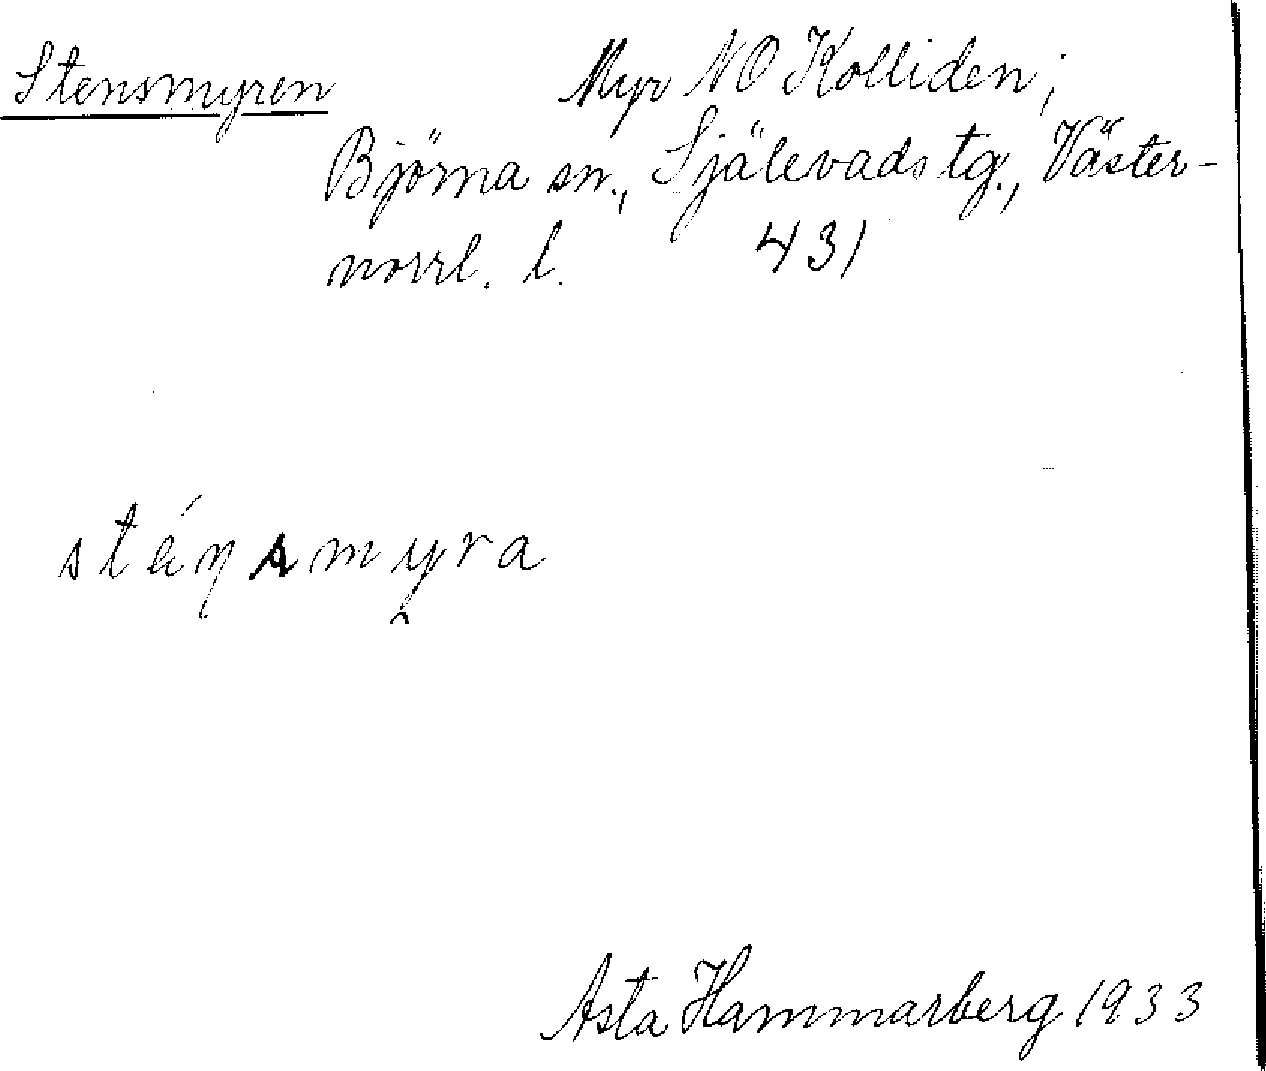 Stensmyren Myr NO Kolliden;
Björna sn., Själevads tg., Väster-
norrl. l. 431
sténsmyra
Asta Hammarberg 1933